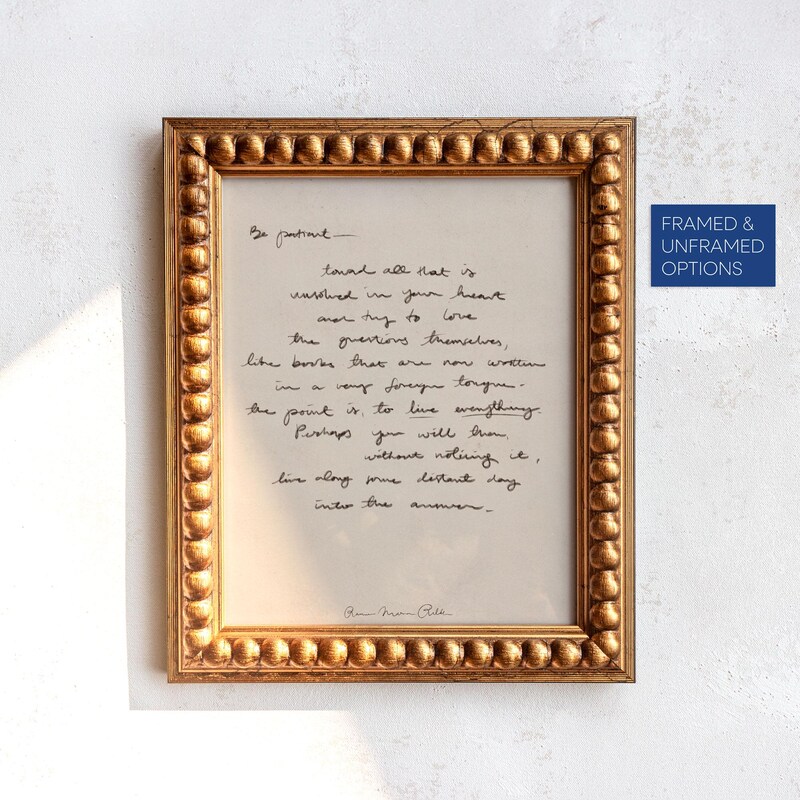 Be patient—
toward all that is
unsolved in your heart
and try to love
the questions themselves,
like books that are now written
in a very foreign tongue.
the point is, to live everything.
Perhaps you will then,
without noticing it,
live along some distant day
into the answer.
Rainer Maria Rilke
FRAMED &
UNFRAMED
OPTIONS